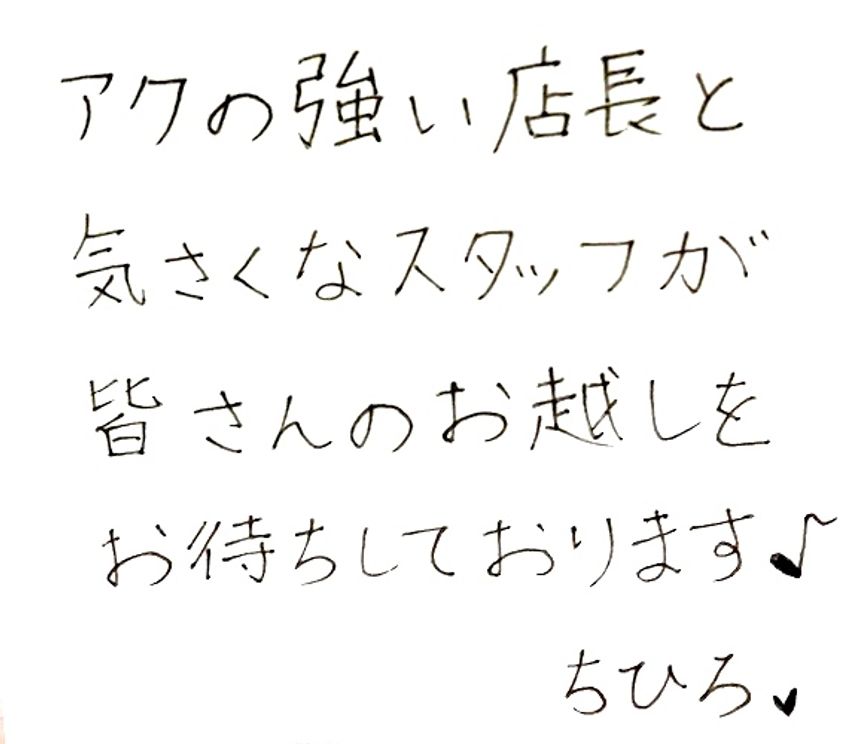 アクの強い店長と
気さくなスタッフが
皆さんのお越しを
お待ちしております♪
ちひろ♥